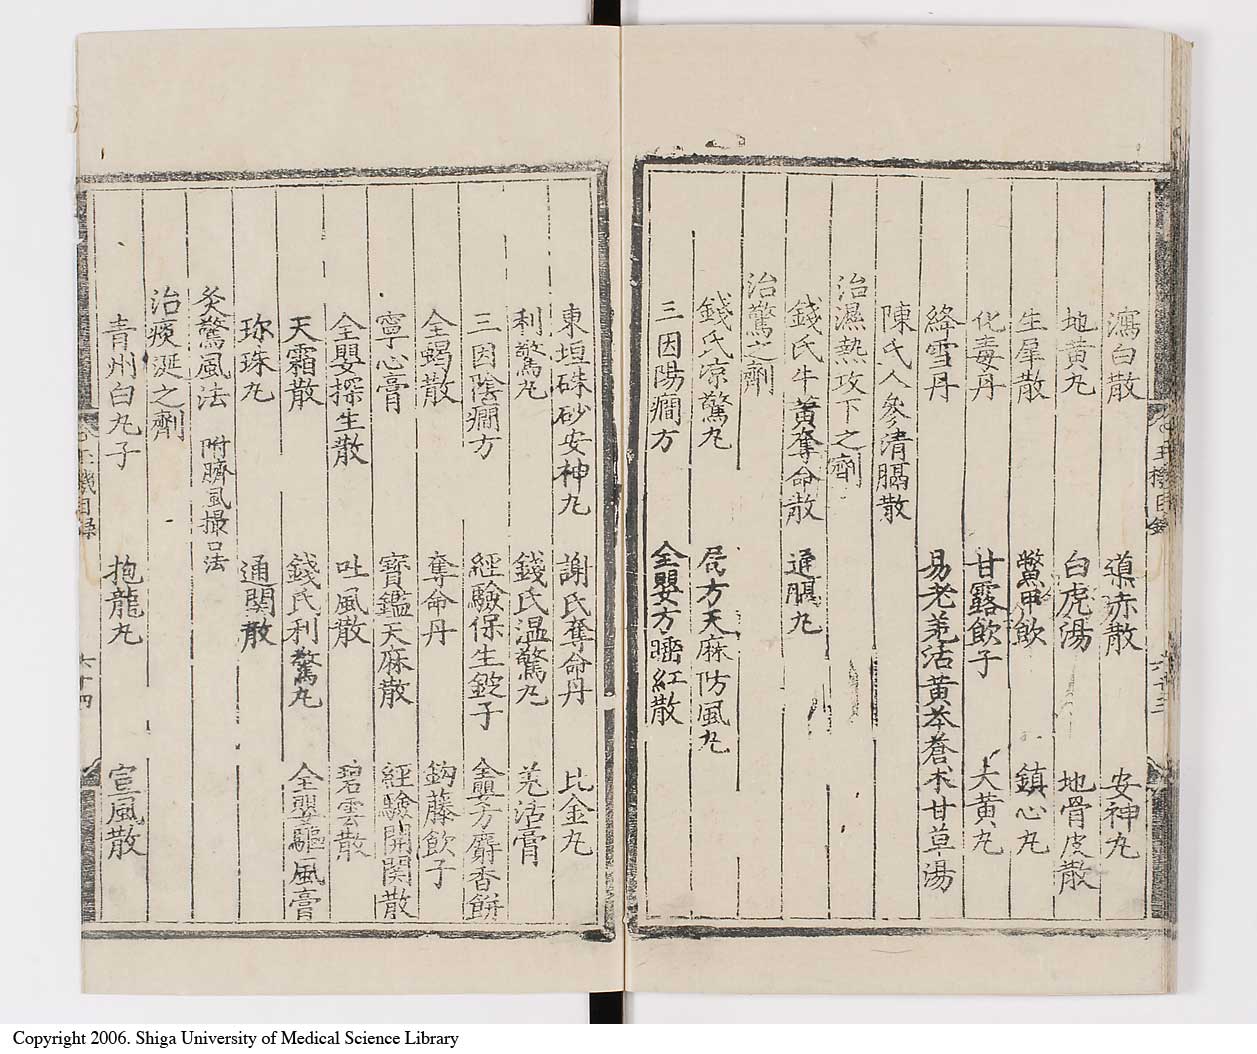 瀉白散　導赤散　安神丸
地黄丸　白虎湯　地骨皮散
生犀散　鱉甲飲　鎮心丸
化毒丹　甘露飲子　大黄丸
絳雪丹　易老羌活黄芩蒼朮甘草湯
陳氏人參清膈散
治濕熱攻下之劑
錢氏牛黄奪命散　通膈丸
治驚之劑
錢氏凉驚丸　局方天麻防風丸
三因陽癇方　全嬰方睡紅散
東垣硃砂安神丸　謝氏奪命丹　比金丸
利驚丸　錢氏温驚丸　羌活膏
三因陰癇方　經驗保生錠子　全嬰方麝香餅
全蝎散　奪命丹　鈎藤飲子
寧心膏　寳鑑天麻散　經驗開関散
全嬰探生散　吐風散　碧雲散
天霜散　錢氏利驚丸　全嬰驅風膏
珎珠丸　通関散
灸驚風法　附臍風撮口法
治痰涎之劑
青州白丸子　抱龍丸　宣風散
玉機目録
六十四
Copyright 2006. Shiga University of Medical Science Library